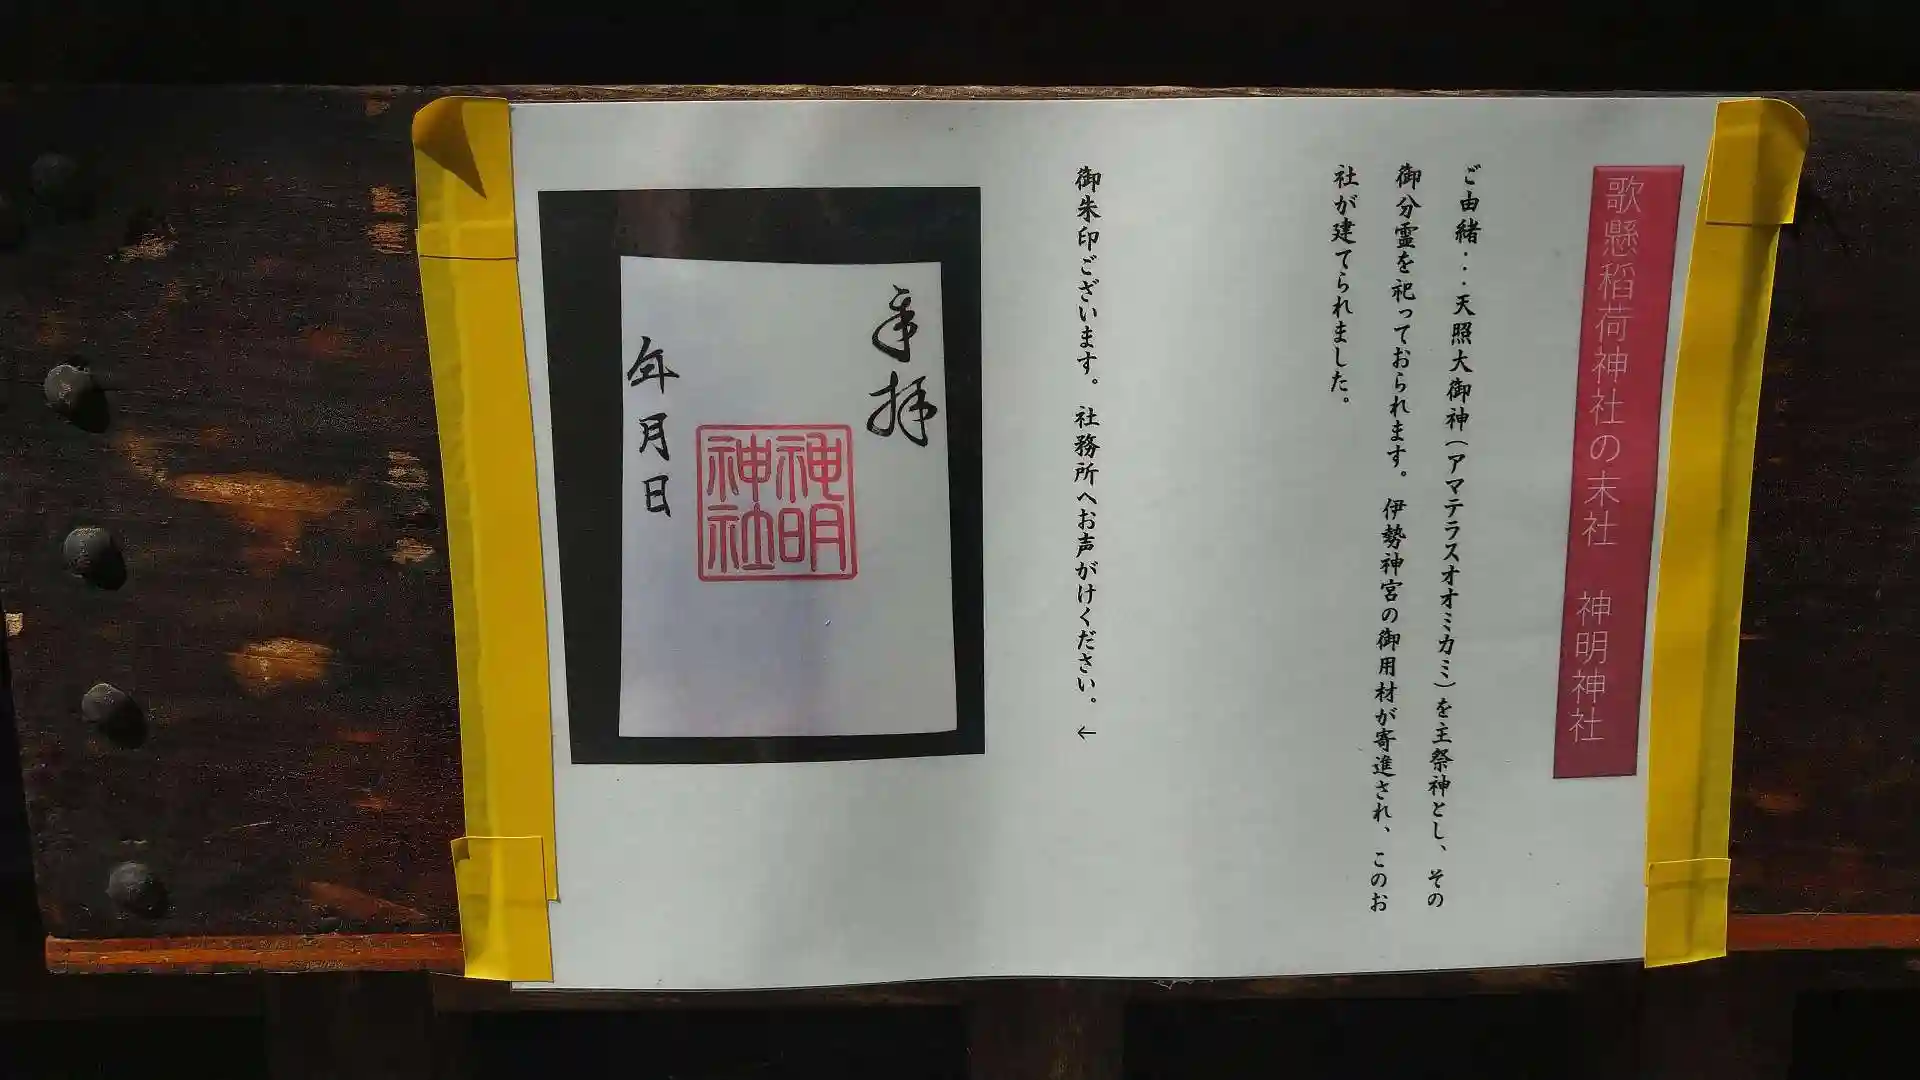 歌懸稲荷神社の末社　神明神社
ご由緒・・・天照大御神（アマテラスオオミカミ）を主祭神とし、その
御分霊を祀っておられます。伊勢神宮の御用材が寄進され、このお
社が建てられました。
御朱印ございます。社務所へお声がけください。←
奉拝
神明
神社
年月日